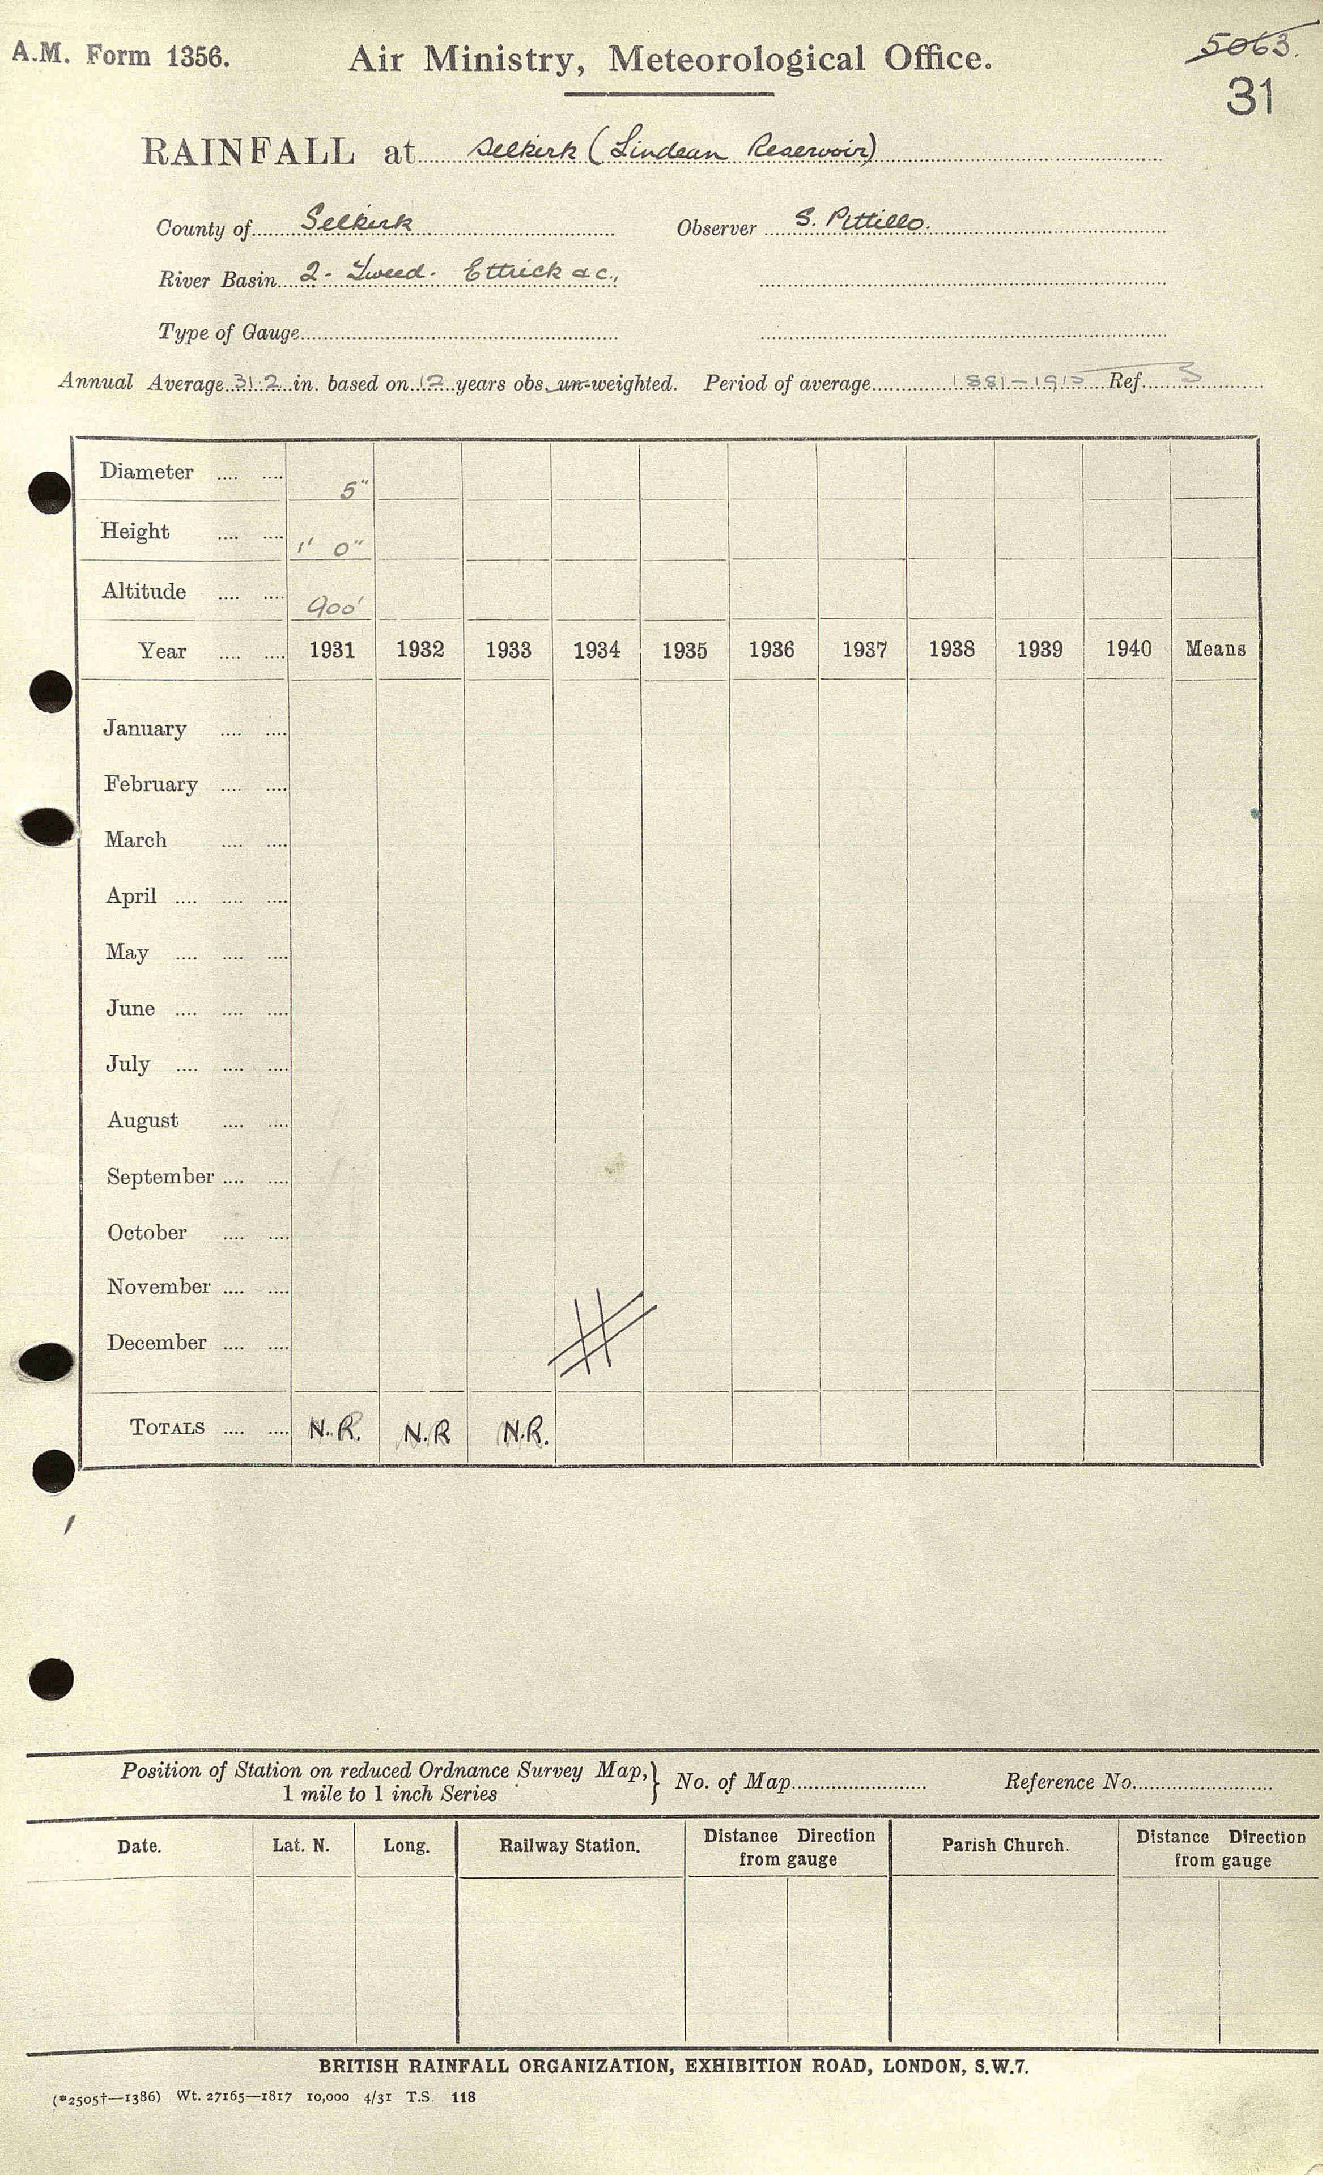 A.M. Form 1356. Air Ministry, Meteorological Office. 5063.
31
RAINFALL at Selkirk (Lindean Reservoir)
County of Selkirk Observer S. Pittillo.
River Basin 2. Tweed. Ettrick &c.,
Type of Gauge
Annual Average 31.2 in. based on 12 years obs. un-weighted. Period of average 1881-1915 Ref. 3
Diameter .... .... 5"
Height .... .... 1' 0"
Altitude .... .... 900'
Year .... .... 1931 1932 1933 1934 1935 1936 1937 1938 1939 1940 Means
January .... ....
February .... ....
March .... ....
April .... .... ....
May .... .... ....
June .... .... ....
July .... .... ....
August .... ....
September .... ....
October .... ....
November .... ....
December .... ....
TOTALS .... .... N.R. N.R N.R.
Position of Station on reduced Ordnance Survey Map, } No. of Map Reference No.
1 mile to 1 inch Series
Date. Lat. N. Long. Railway Station. Distance Direction from gauge Parish Church. Distance Direction from gauge
BRITISH RAINFALL ORGANIZATION, EXHIBITION ROAD, LONDON, S.W.7.
(*2505†—1386) Wt. 27165—1817 10,000 4/31 T.S. 118